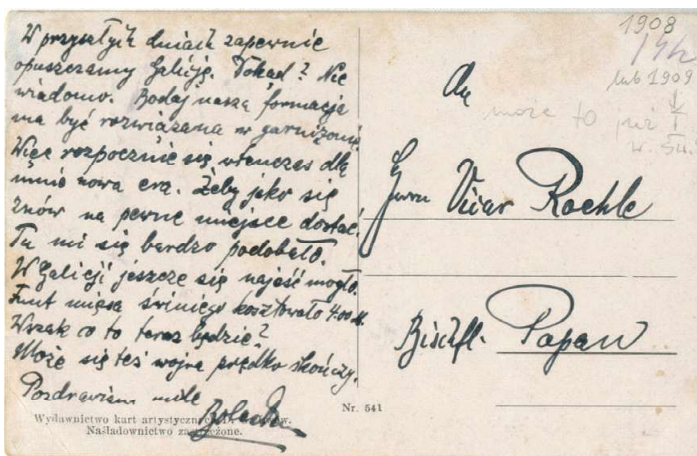 W przyszłych dniach zapewnie
opuszczamy Galicję. Dokąd? Nie
wiadomo. Bodaj nasza formacja
ma być rozwiązana w garnizonie.
Więc rozpocznie się wtenczas dla
mnie nowa era. Żeby jako się
znów na pewne miejsce dostać.
Tu mi się bardzo podobało.
W Galicji jeszcze się najeść mogło.
Funt mięsa świniego kosztowało 4.00 M.
Wszak co to teraz będzie?
Może się też wojna prędko skończy.
Pozdrawiam mile
Wydawnictwo kart artystycznych
Naśladownictwo zastrzeżone.
Nr. 541
1908
lub 1909
może to już I
w. św.
Herrn Vicar Rochle
Bischfl. Papau